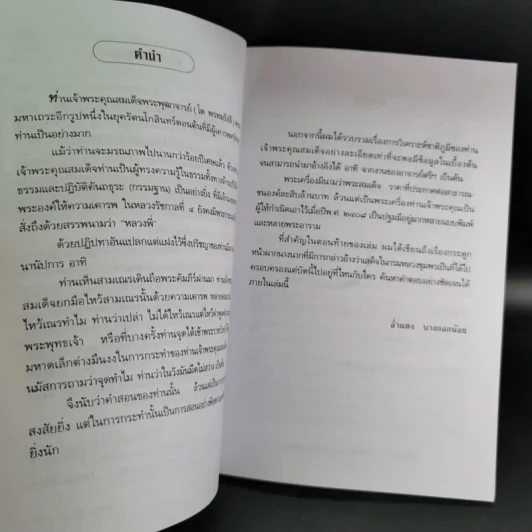 คำนำ
ท่านเจ้าพระคุณสมเด็จพระพุฒาจารย์ (โต
มหาเถระอีกรูปหนึ่งในยุครัตนโกสินทร์ตอนต้นที่มีผู้เคารพ
ท่านเป็นอย่างมาก
แม้ว่าท่านจะมรณภาพไปนานกว่าร้อยปีเศษแล้ว
เจ้าพระคุณสมเด็จท่านเป็นผู้ทรงความรู้ในธรรมทั้งทาง
ธรรมและปฏิบัติคันถธุระ (กรรมฐาน) เป็นอย่างยิ่ง
พระองค์ให้ความเคารพ ในหลวงรัชกาลที่ ๔
สั่งถึงด้วยสรรพนามว่า "หลวงพี่"
ด้วยปฏิปทาอันแปลกแต่แฝงไว้ซึ่งปริชญาของท่าน
นานัปการ อาทิ
ท่านเห็นสามเณรเดินถือพระคัมภีร์ผ่านมา
สมเด็จยกมือไหว้สามเณรนั้นด้วยความเคารพ
ไหว้เณรทำไม ท่านว่าเปล่า ไม่ได้ไหว้เณรแต่ไหว้
พระพุทธเจ้า หรือที่บางครั้งท่านจุดไต้เข้าพระราชวัง
มหาดเล็กต่างมึนงงในการกระทำของท่านเจ้าพระคุณ
นมัสการถามว่าจุดทำไม ท่านว่าในวังมันมืดไม่สว่าง
จึงนับว่าคำสอนของท่านนั้น ล้วนแต่เป็น
สงสัยยิ่ง แต่ในการกระทำนั้นเป็นการสอนอย่าง
ยิ่งนัก
นอกจากนี้ผมได้รวบรวมเรื่องการวิเคราะห์ชาติภูมิของท่าน
เจ้าพระคุณสมเด็จอย่างละเอียดเท่าที่จะพอมีข้อมูลในเบื้องต้น
จนสามารถนำมาอ้างอิงได้ อาทิ จากงานของอาจารย์ตรีฯ เป็นต้น
พระเครื่องมีนามว่าพระสมเด็จ ราคาที่ประกาศต่อสาธารณ
ชนองค์ละสิบล้านบาท ล้วนแต่เป็นพระเครื่องท่านเจ้าพระคุณเป็น
ผู้ให้กำเนิดเอาไว้เมื่อปีพ ศ. ๒๔๐๘ เป็นปฐมมีอยู่มากหลายแบบพิมพ์
และหลายพระอาราม
ที่สำคัญในตอนท้ายของเล่ม ผมได้เขียนถึงเรื่องกระดูก
หน้าผากนางนากที่มีการกล่าวอ้างว่าเสด็จในกรมหลวงชุมพรเป็นที่ได้ไป
ครอบครองแต่บัดนี้ไปอยู่ที่ไหนกับใคร ค้นหาคำตอบอย่างชัดเจนได้
ภายในเล่มนี้
ฉ่ำแสง บางกอกน้อย